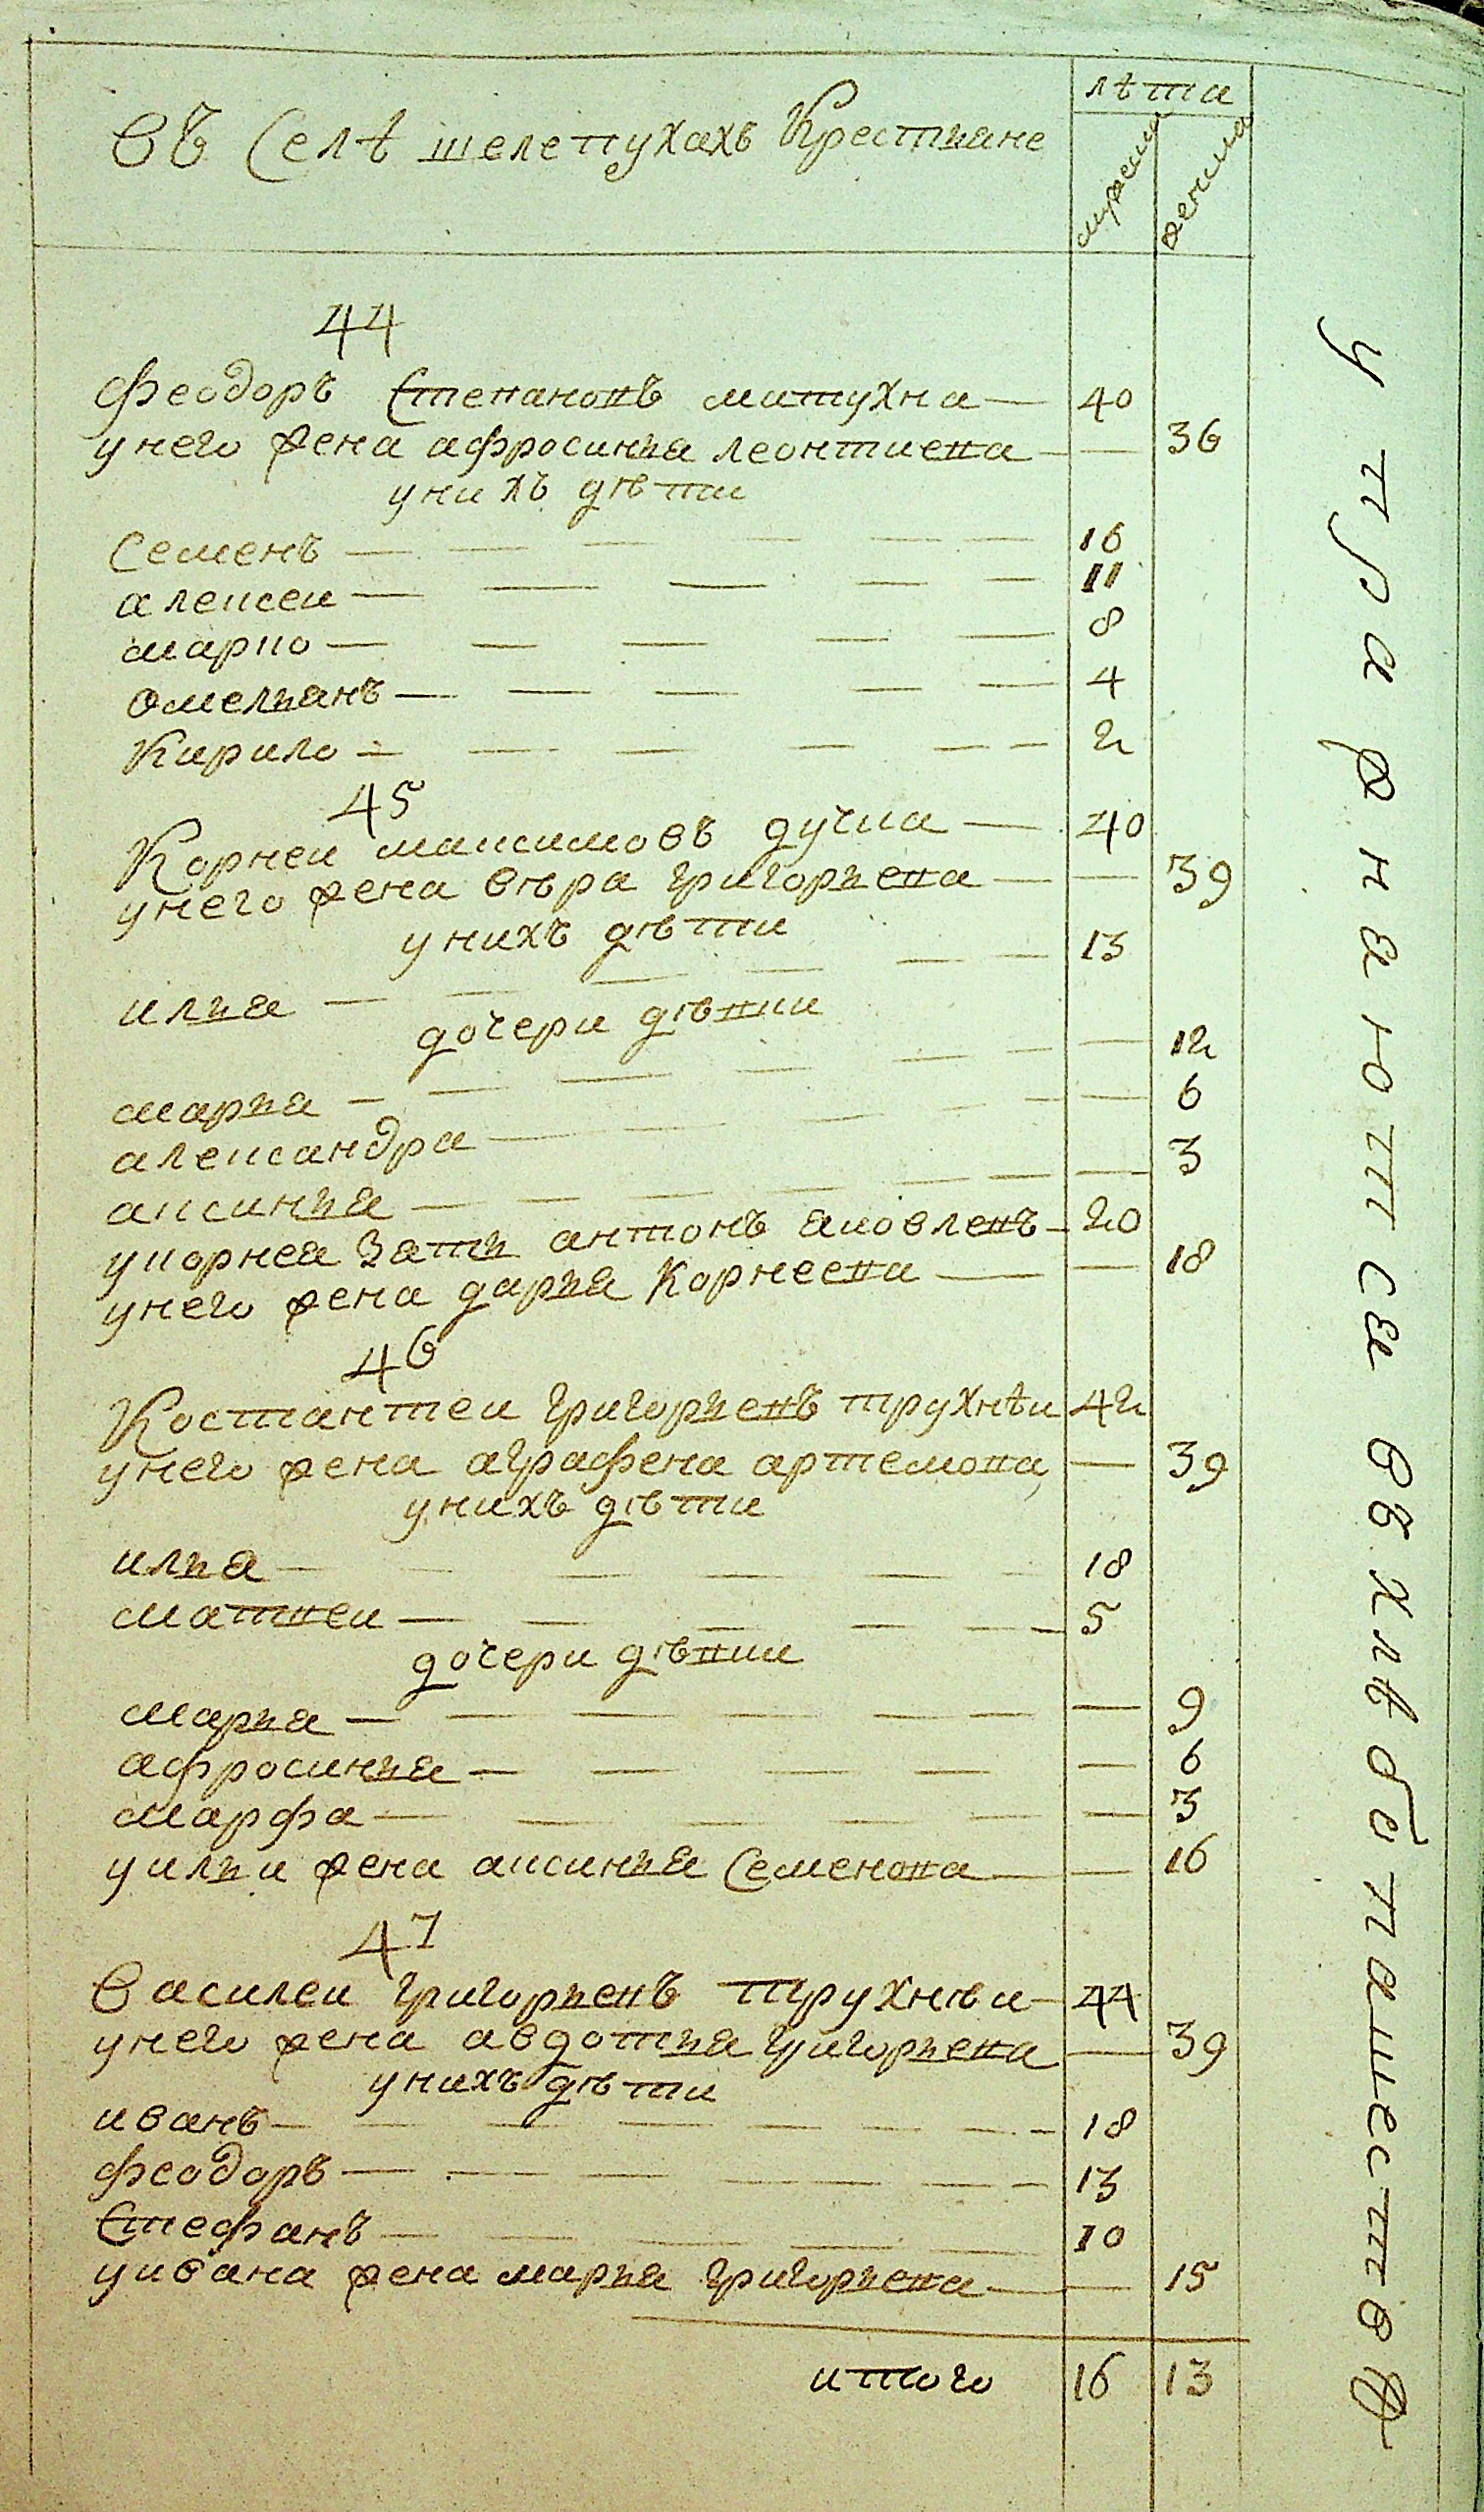 лѣта
въ Селѣ шелепухахъ Крестьяне
мужска
женска
44
Феодоръ Степановъ матухна 40
унего жена афросинья леонтиева 36
унихъ дѣти
Семенъ 16
алексеи 11
марко 8
Омельянъ 4
Кирило 2
45
Корнеи максимовъ дучка 40
унего жена вѣра григорьева 39
унихъ дѣти
илья 13
дочери дѣвки
марья 12
александра 6
аксинья 3
укорнея зать антонъ яковлевъ 20
унего жена дарья Корнеева 18
46
Костантеи григорьевъ трухнѣи 42
унего жена аграфена артемова 39
унихъ дѣти
илья 18
матвеи 5
дочери дѣвки
марья 9
афросинья 6
марфа 3
уильи жена аксинья Семенова 16
47
Василеи григорьевъ трухнѣи 44
унего жена авдотья григорьева 39
унихъ дѣти
иванъ 18
феодоръ 13
Стефанъ 10
уивана жена марья григорьева 15
итого 16 13
упражняются въ хлѣбопашествѣ